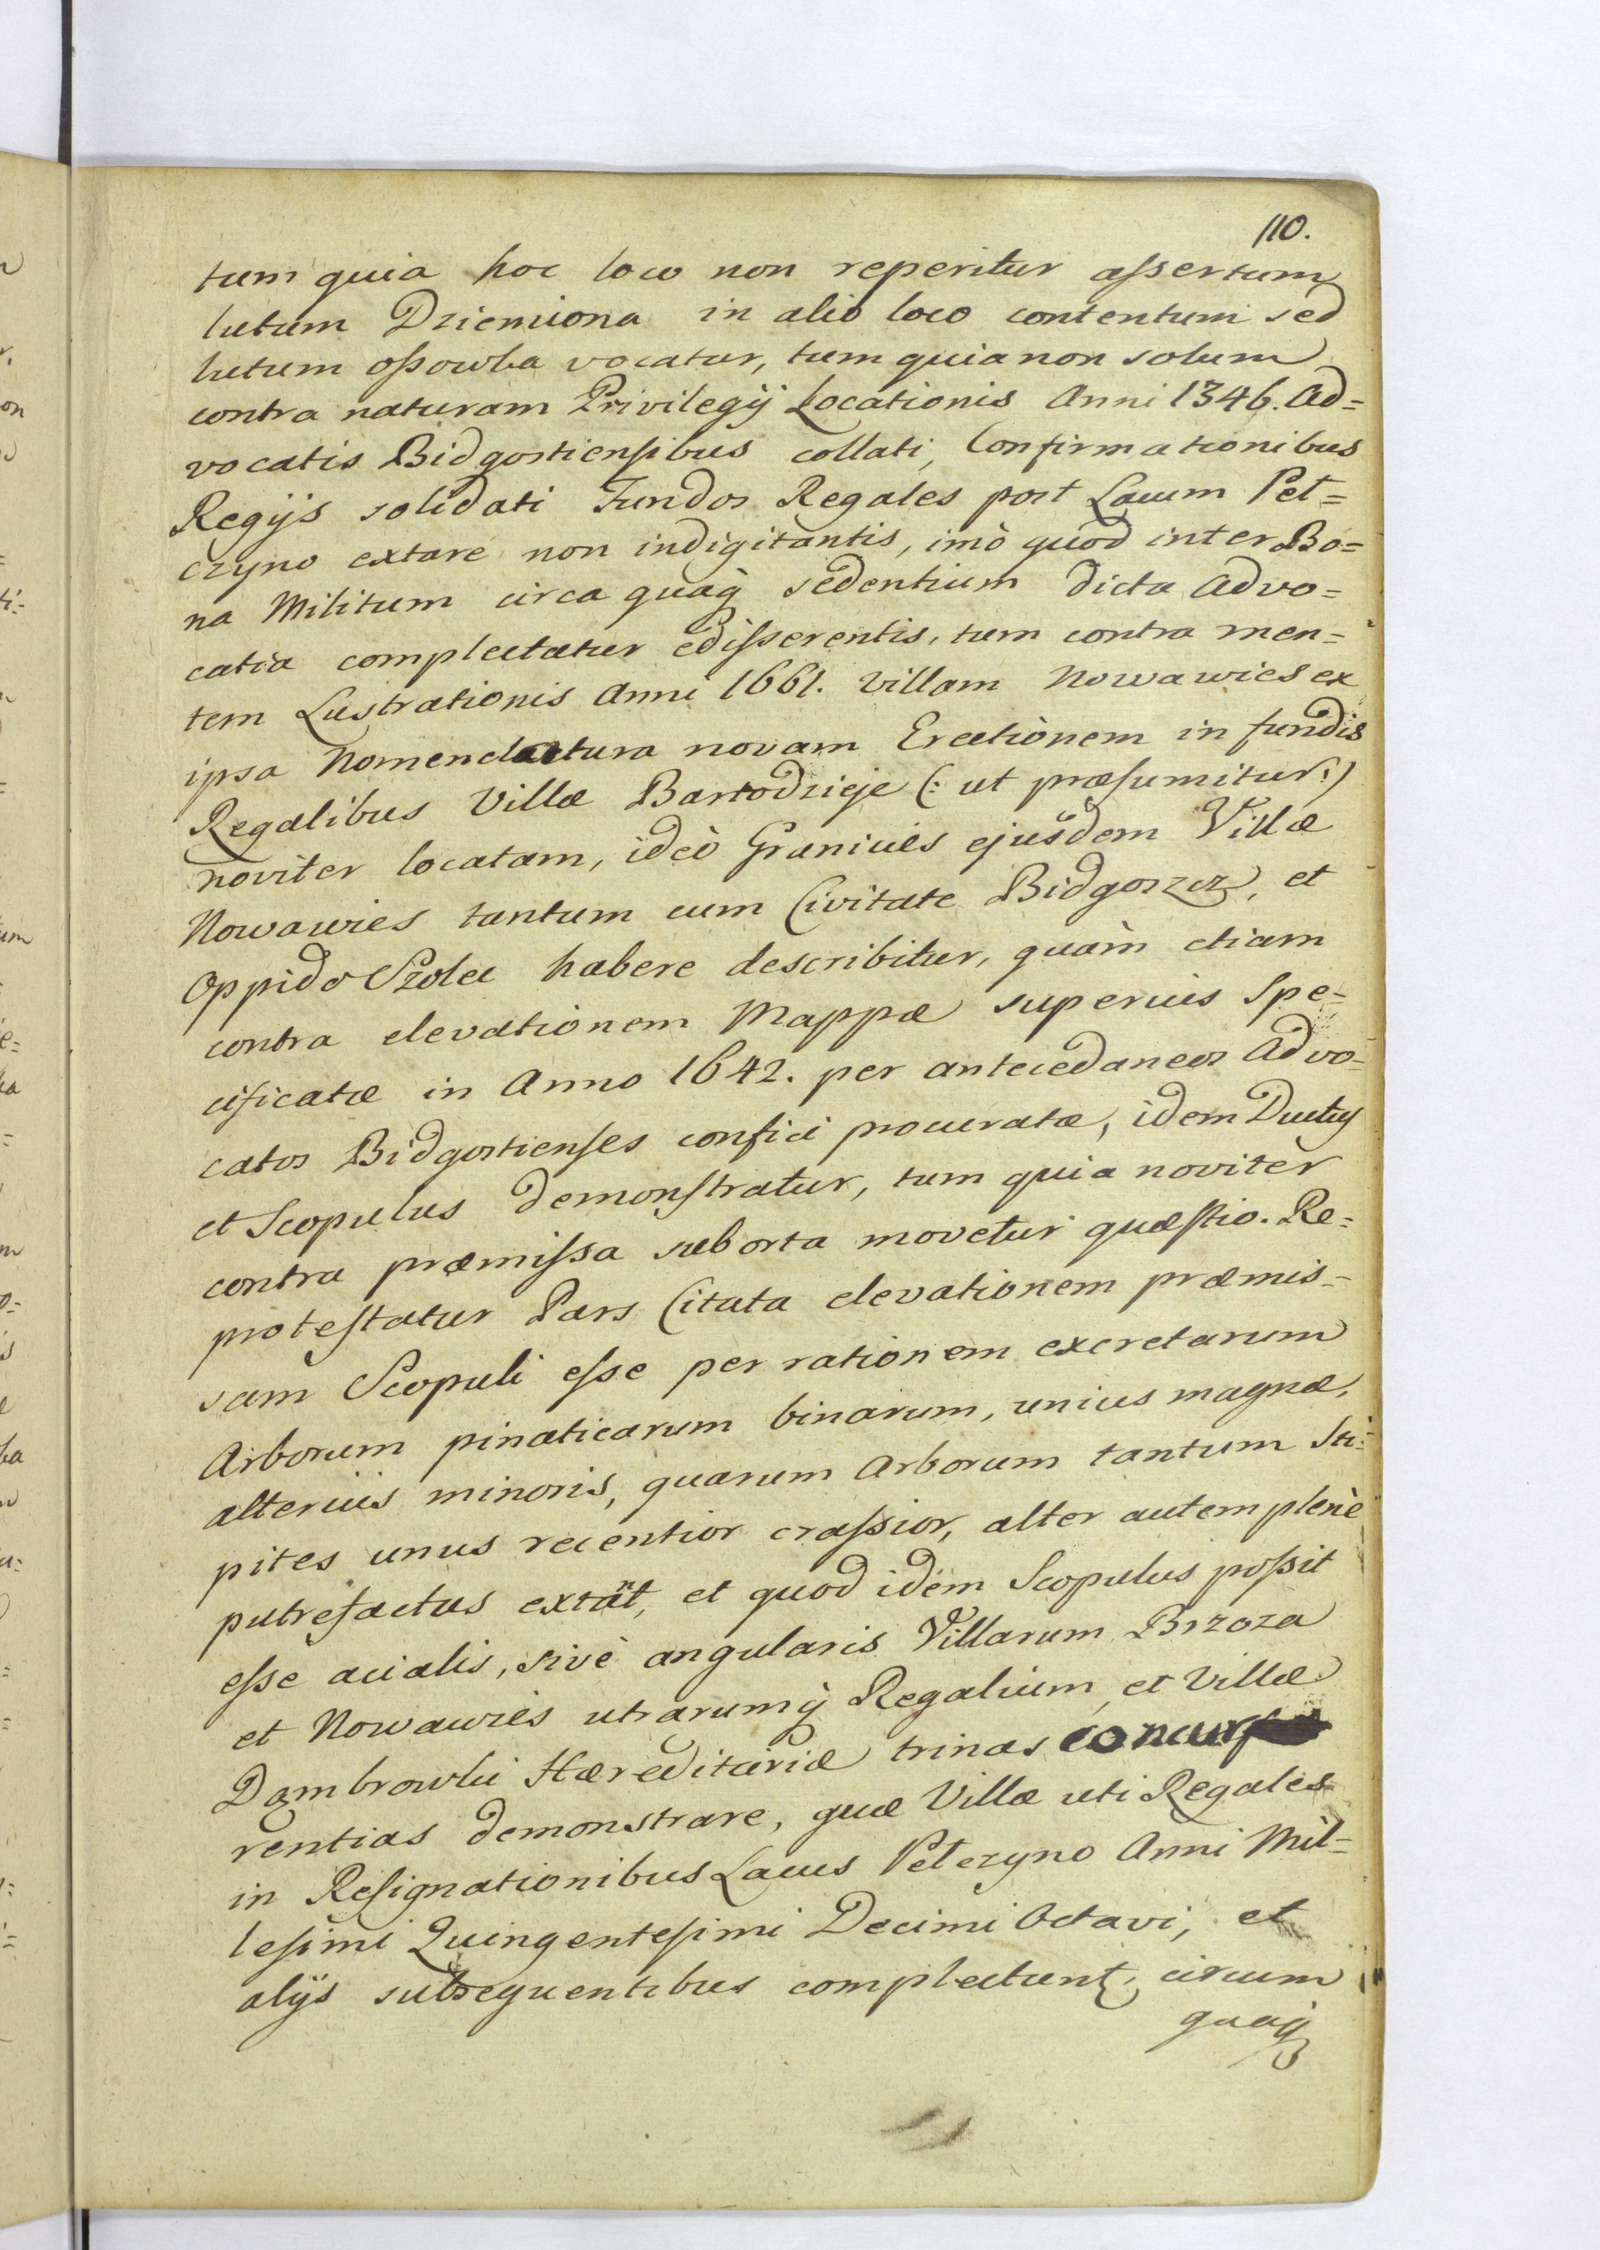 110.
tum quia hoc loco non reperitur assertum
lutum Dziemiona in alio loco contentum sed
lutum ossowka vocatur, tum quia non solum
contra naturam Privilegij Locationis Anni 1346. Ad=
vocatis Bidgostiensibus collati, Confirmationibus
Regijs solidati Fundos Regales post Lacum Pet=
czyno extare non indigitantis, imò quod inter Bo=
na Militum circa quaq̀ sedentium dicta Advo=
catia complectatur edisserentis, tum contra men=
tem Lustrationis Anni 1661. Villam Nowawies ex
ipsa Nomenclatura novam Erectionem in fundis
Regalibus Villæ Bartodzieje (: ut præsumitur :)
noviter locatam, ideò Granicies ejusdem Villæ
Nowawies tantum cum Civitate Bidgoszcz, et
Oppido Szolec habere describitur, quàm etiam
contra elevationem Mappæ superius Spe=
cificatæ in Anno 1642. per antecedaneos Advo=
catos Bidgostienses confici procuratæ, idem Ductus
et Scopulus demonstratur, tum quia noviter
contra præmissa suborta movetur quæstio. Re=
protestatur Pars Citata elevationem præmis=
sam Scopuli esse per rationem excretarum
Arborum pinaticarum binarum, unius magnæ,
alterius minoris, quarum Arborum tantum Sti=
pites unus recentior crassior, alter autem plenè
putrefactus extat, et quod idem Scopulus possit
esse acialis, sivè angularis Villarum Brzoza
et Nowawies utrarumq̀ Regalium, et Villæ
Dąmbrowki Hæreditariæ trinas concur
rentias demonstrare, quæ Villæ uti Regales
in Resignationibus Lacus Petczyno Anni Mil=
lesimi Quingentesimi Decimi Octavi, et
alijs subsequentibus complectunt, circum
quaq̀